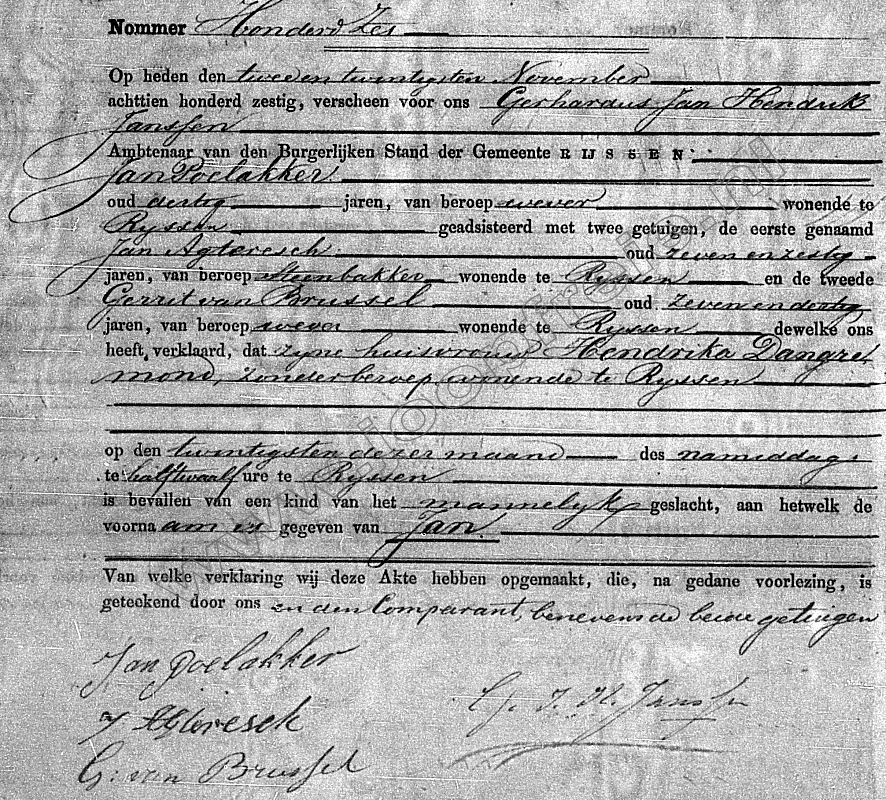 Nommer Honderd Zes
Op heden den twee en twintigsten November
achttien honderd zestig, verscheen voor ons Gerhardus Jan Hendrik
Janssen
Ambtenaar van den Burgerlijken Stand der Gemeente RIJSSEN
Jan Poelakker
oud dertig jaren, van beroep wever wonende te
Ryssen geadsisteerd met twee getuigen, de eerste genaamd
Jan Agteresch oud zeven en zestig
jaren, van beroep steenbakker wonende te Ryssen en de tweede
Gerrit van Brussel oud zeven en dertig
jaren, van beroep wever wonende te Ryssen dewelke ons
heeft verklaard, dat zyne huisvrouw Hendrika Dangre
mond, zonder beroep, wonende te Ryssen
op den twintigsten dezer maand des namiddags
te half twaalf ure te Ryssen
is bevallen van een kind van het mannelyk geslacht, aan hetwelk de
voornaam is gegeven van Jan.
Van welke verklaring wij deze Akte hebben opgemaakt, die, na gedane voorlezing, is
geteekend door ons en den Comparant, benevens de beide getuigen
Jan Poelakker
J Agteresch
G. J. H. Janssen
G. van Brussel